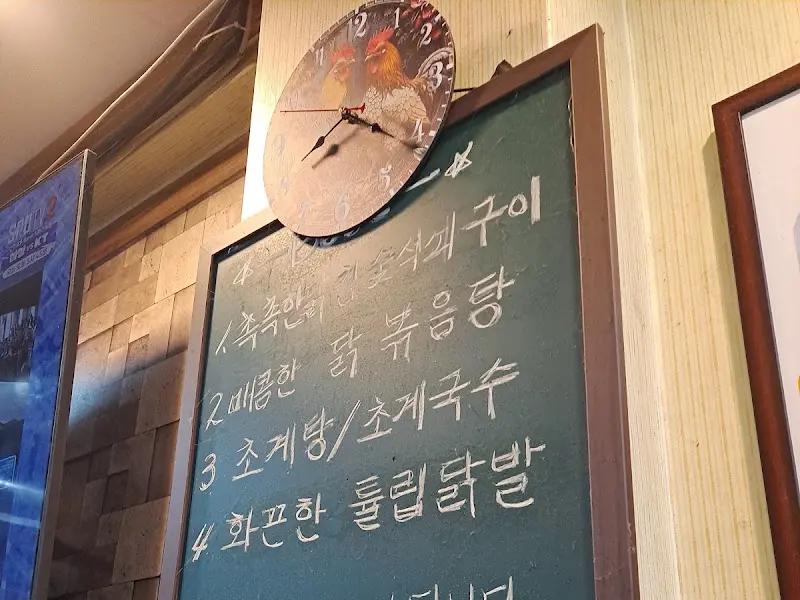 12
1
2
3
4
5
6
8
9
11
1 촉촉한 숯 석쇠구이
2 매콤한 닭 볶음탕
3 초계탕/초계국수
4 화끈한 튤립닭발